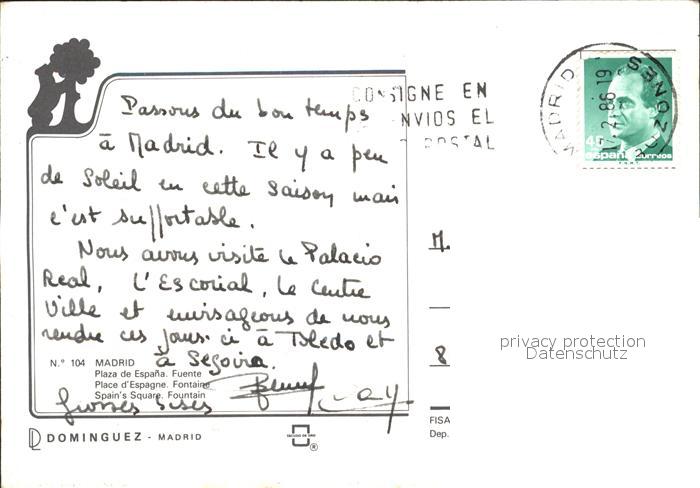 Passons du bon temps
à Madrid. Il y a peu
de Soleil en cette saison mais
c'est supportable.
Nous avons visité le Palacio
Real, L'Escorial, le Centre
Ville et envisageons de nous
rendre ces jours-ci à Toledo et
à Segovia.
Grosses bises
N.º 104 MADRID
Plaza de España. Fuente
Place d'Espagne. Fontaine
Spain's Square. Fountain
DOMINGUEZ - MADRID
CONSIGNE EN
ENVIOS EL
POSTAL
MADRID
2 86 19
españa correos
M.
8
privacy protection
Datenschutz
FISA
Dep.